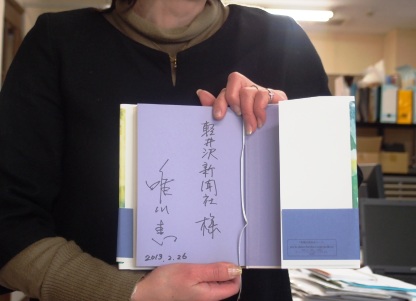 軽井沢新聞社 様
唯川恵
2013.2.26